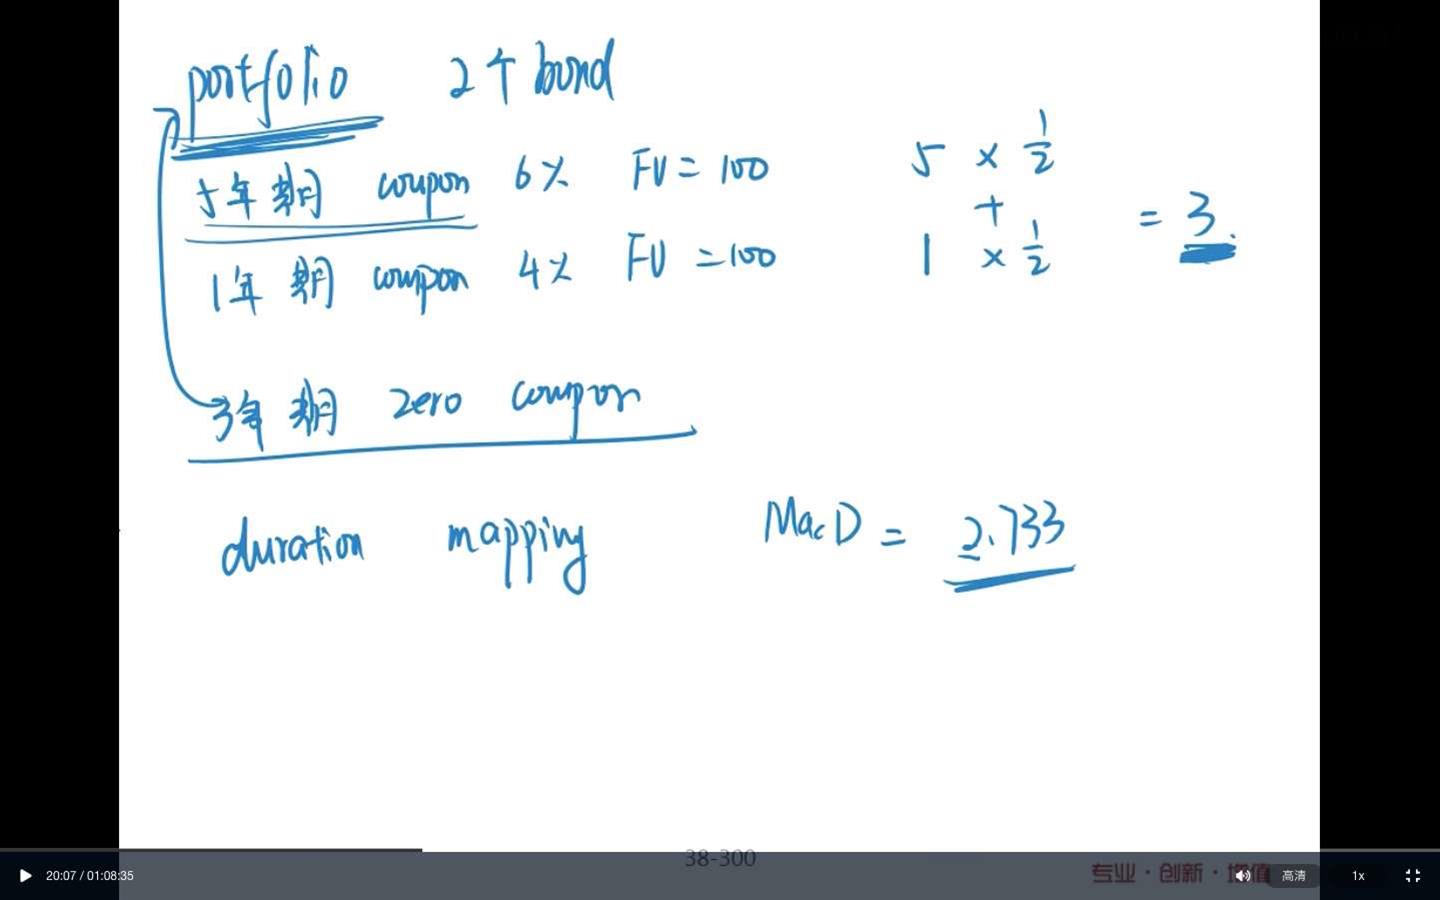 portfolio 2个 bond
5年期 coupon 6% FV = 100
1年期 coupon 4% FV = 100
5 × 1/2
+
1 × 1/2
= 3.
3年期 zero coupon
duration mapping MacD = 2.733
38-300
专业·创新·增值
20:07 / 01:08:35 高清 1x